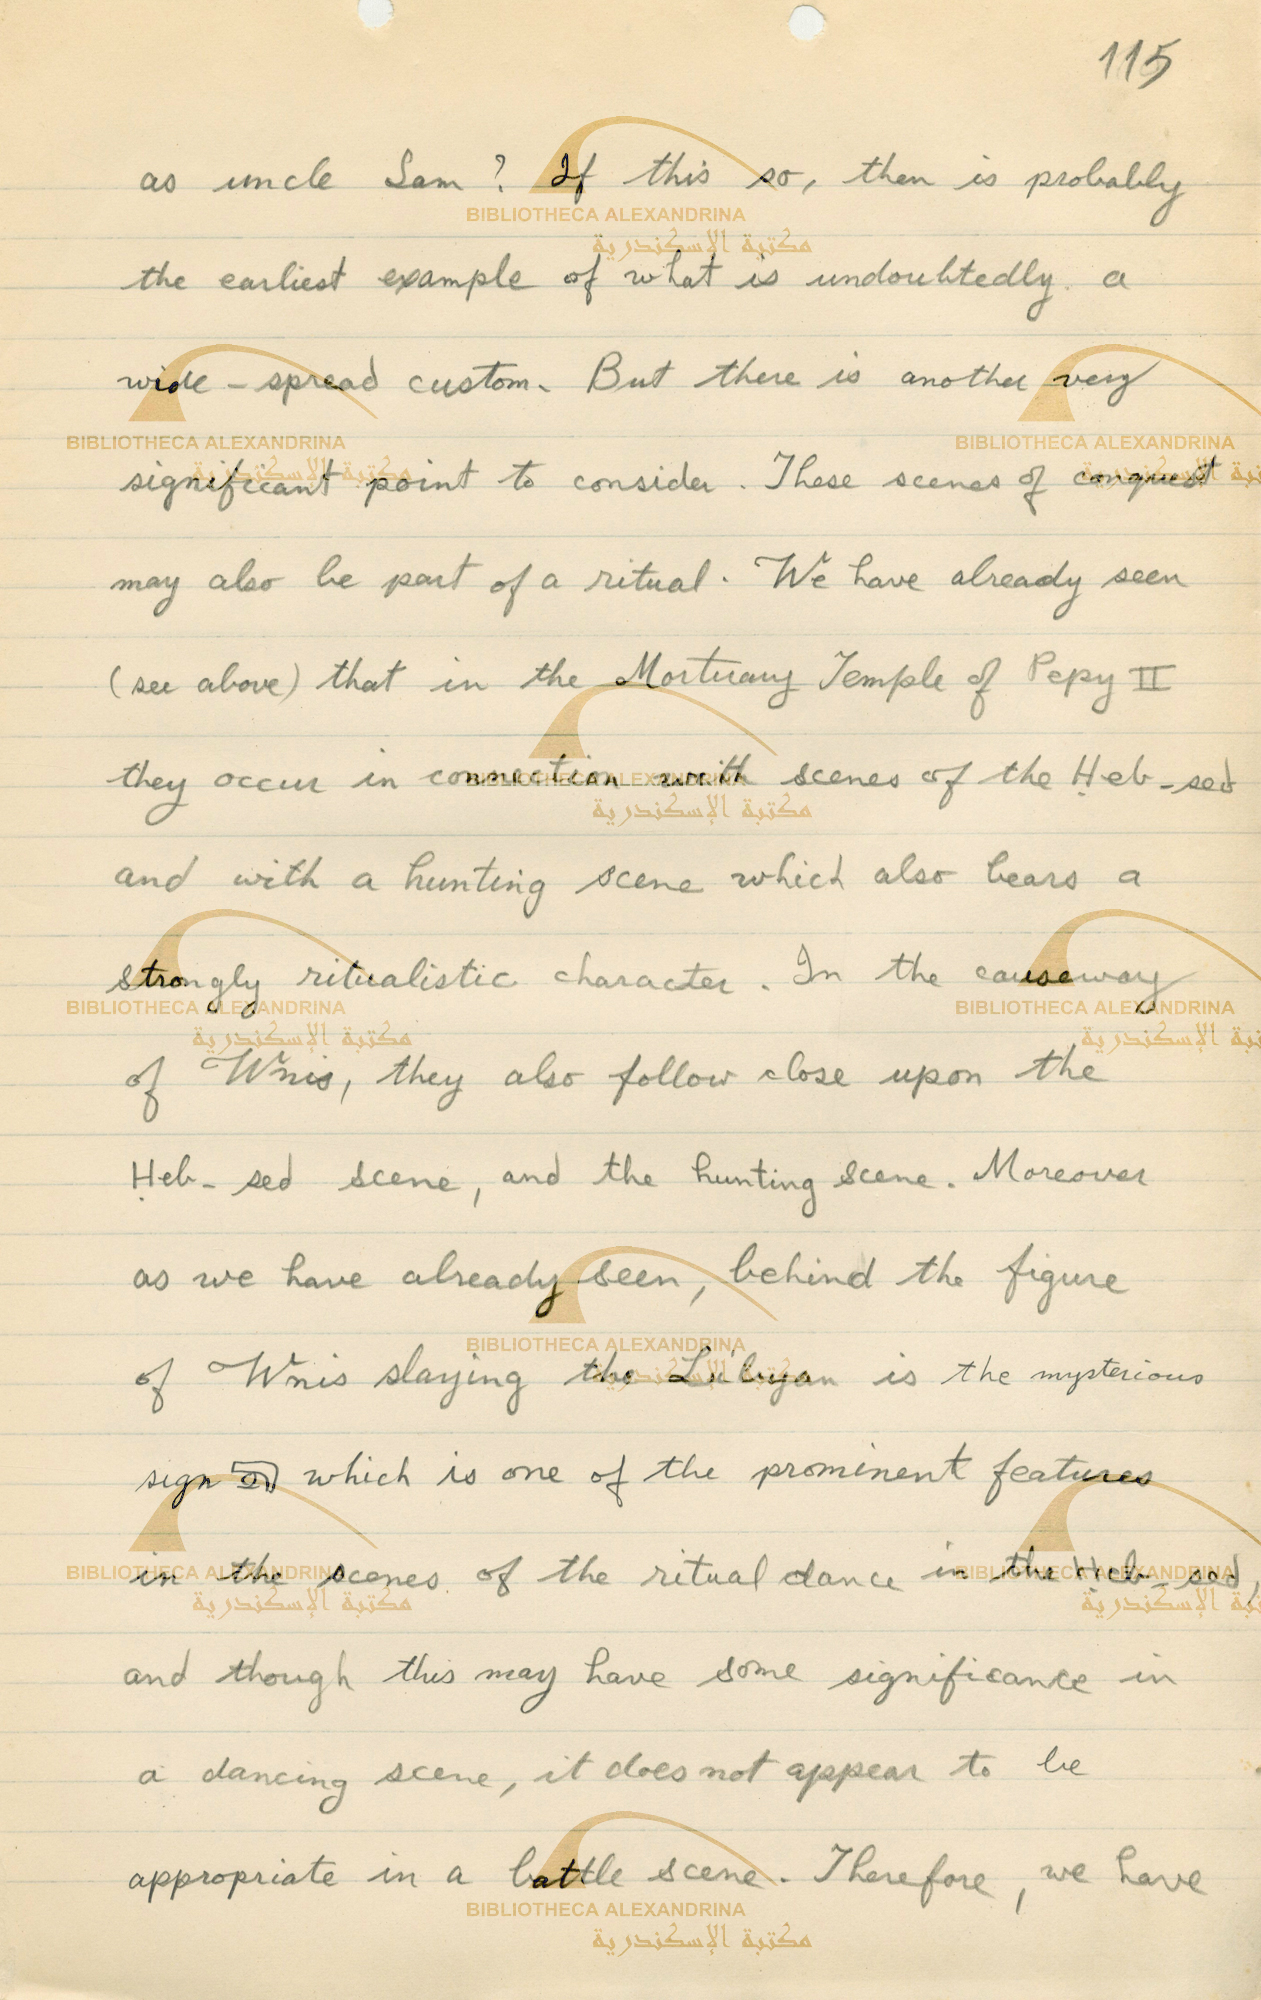 115
as uncle Sam ? If this so, then is probably
the earliest example of what is undoubtedly a
wide-spread custom. But there is another very
significant point to consider. These scenes of conquest
may also be part of a ritual. We have already seen
(see above) that in the Mortuary Temple of Pepy II
they occur in connection with scenes of the Ḥeb-sed
and with a hunting scene which also bears a
strongly ritualistic character. In the causeway
of Wnis, they also follow close upon the
Ḥeb-sed scene, and the hunting scene. Moreover
as we have already seen, behind the figure
of Wnis slaying the Libyan is the mysterious
sign which is one of the prominent features
in the scenes of the ritual dance in the Ḥeb-sed,
and though this may have some significance in
a dancing scene, it does not appear to be
appropriate in a battle scene. Therefore, we have
BIBLIOTHECA ALEXANDRINA
مكتبة الإسكندرية